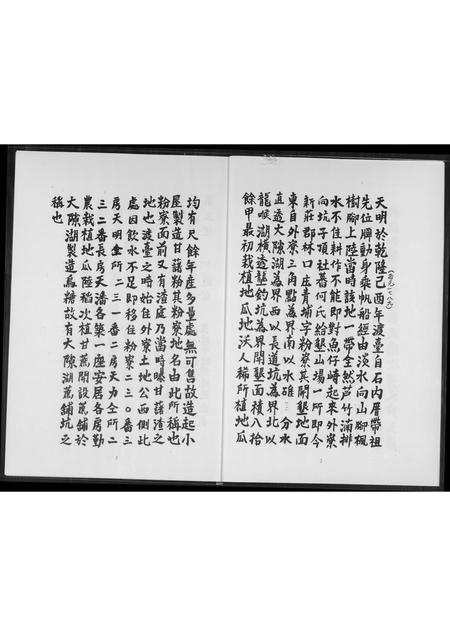 天明於乾隆己酉年渡臺自石內犀帶祖
先位牌動身乘帆船經由淡水向山腳楓
樹腳上陸當時該地一帶全然芦竹滿排
水不佳耕作不能即對魚仔崎起來外寮
向坑子頂社蕃何氏給墾山場一所即今
新莊郡林口庄青埔字粉寮其開墾地面
東自外寮三角點為界南以水碓 分水
直透大陳湖為界西以長道坑為界北以
龍峎湖橫透墾釣坑為界開墾面積八拾
餘甲最初栽植地瓜地沃人稀所植地瓜
均有尺餘年產多量處無可售故造起小
屋製造甘藷粉其粉寮地名由此所稱也
粉寮面前又有渣處乃當時曝甘藷渣之
地也渡臺之時始住外寮土地公西側此
處因飲水不足即移住粉寮二三〇番三
房天明全所二三一番二房天力仝所二
三二番長房天潘各築一座安居各房勤
農栽植地瓜陸稻次植甘蔗開設蔗廍於
大陳湖製造烏糖故有大陳湖蔗廍坑之
稱也